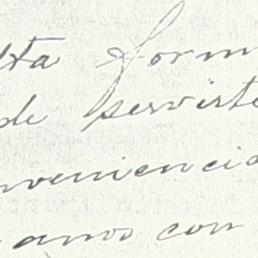 lta form
de servirte
nveniencia
anos con